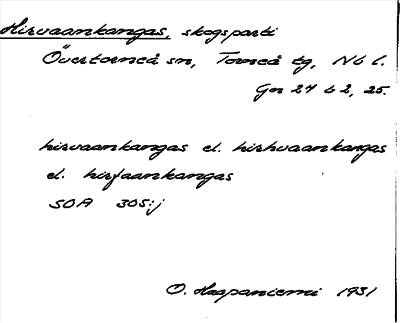 Hirvaankangas, skogsparti
Övertorneå sn, Torneå tg, Nb l.
Gn 27 b 2, 25.
hirvaankangas el. hirhvaankangas
el. hirfaankangas
SOA 305:j
O. Haapaniemi 1931